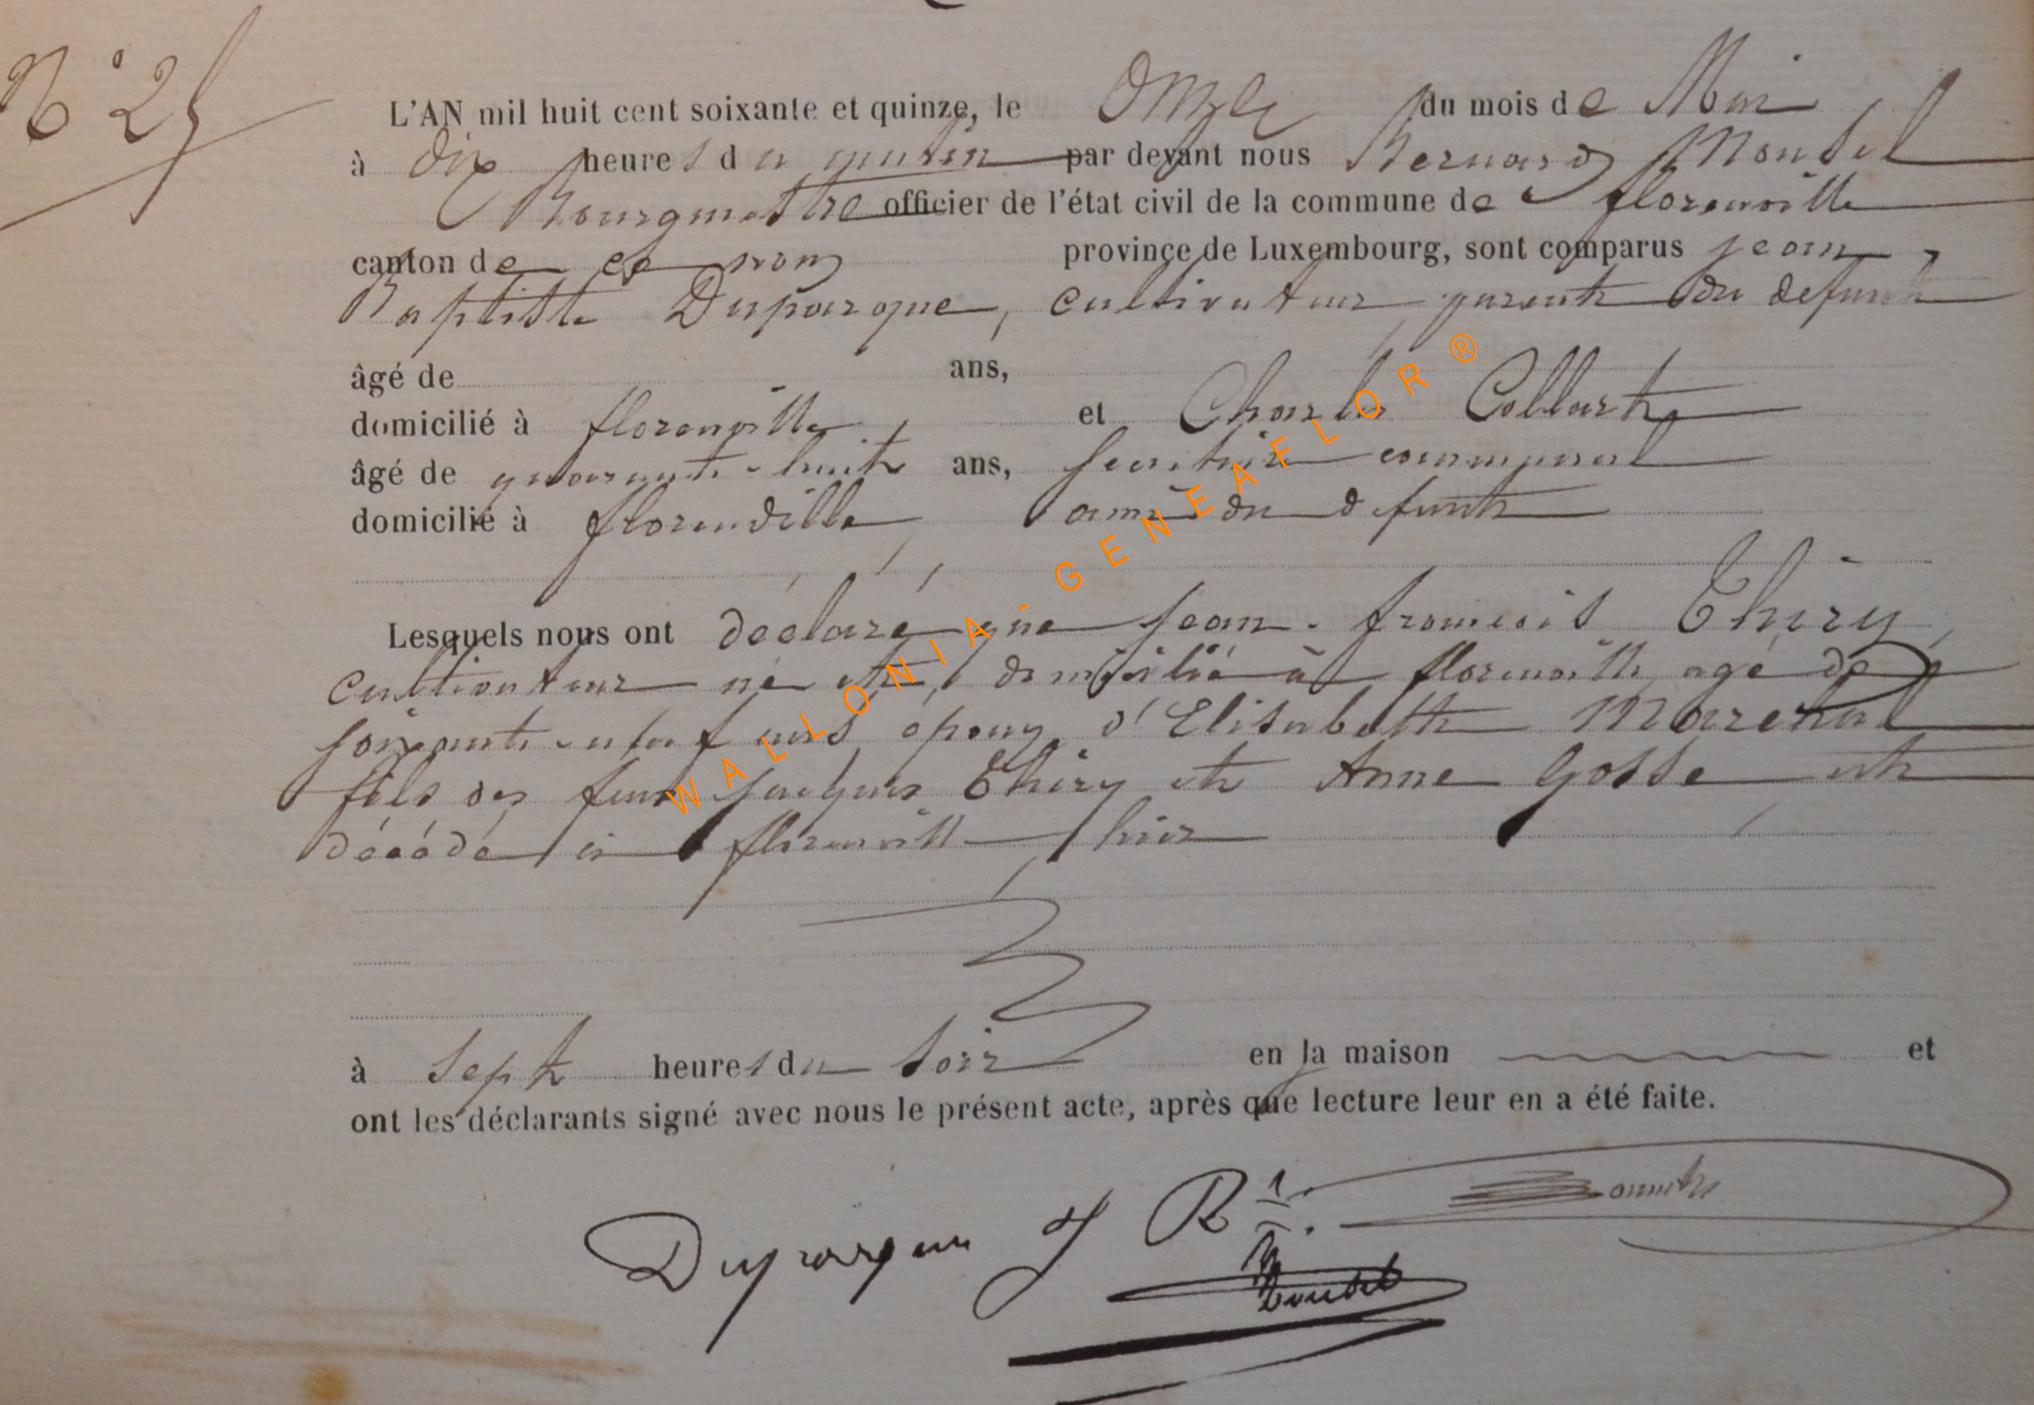 N° 25
L'AN mil huit cent soixante et quinze, le Onze du mois de Mai
à dix heures du matin par devant nous Bernard Monsel
Bourgmestre officier de l'état civil de la commune de florenville
canton de ce nom province de Luxembourg, sont comparus jean
Baptiste Duparque, cultivateur parent du defunt
âgé de ans,
domicilié à florenville et Charles Collart
âgé de quarante-huit ans, secrétaire communal
domicilié à florenville ami du défunt
Lesquels nous ont déclaré que jean-francois Thiry
cultivateur né et domicilié à florenville agé de
soixante-neuf ans époux d'Elisabeth Marechal
fils des feux jacques Thiry et Anne Gosse est
décédé à florenville hier
à sept heures du soir en sa maison et
ont les déclarants signé avec nous le présent acte, après que lecture leur en a été faite.
Duparque J Bte
WALLONIA-GENEAFLOR®